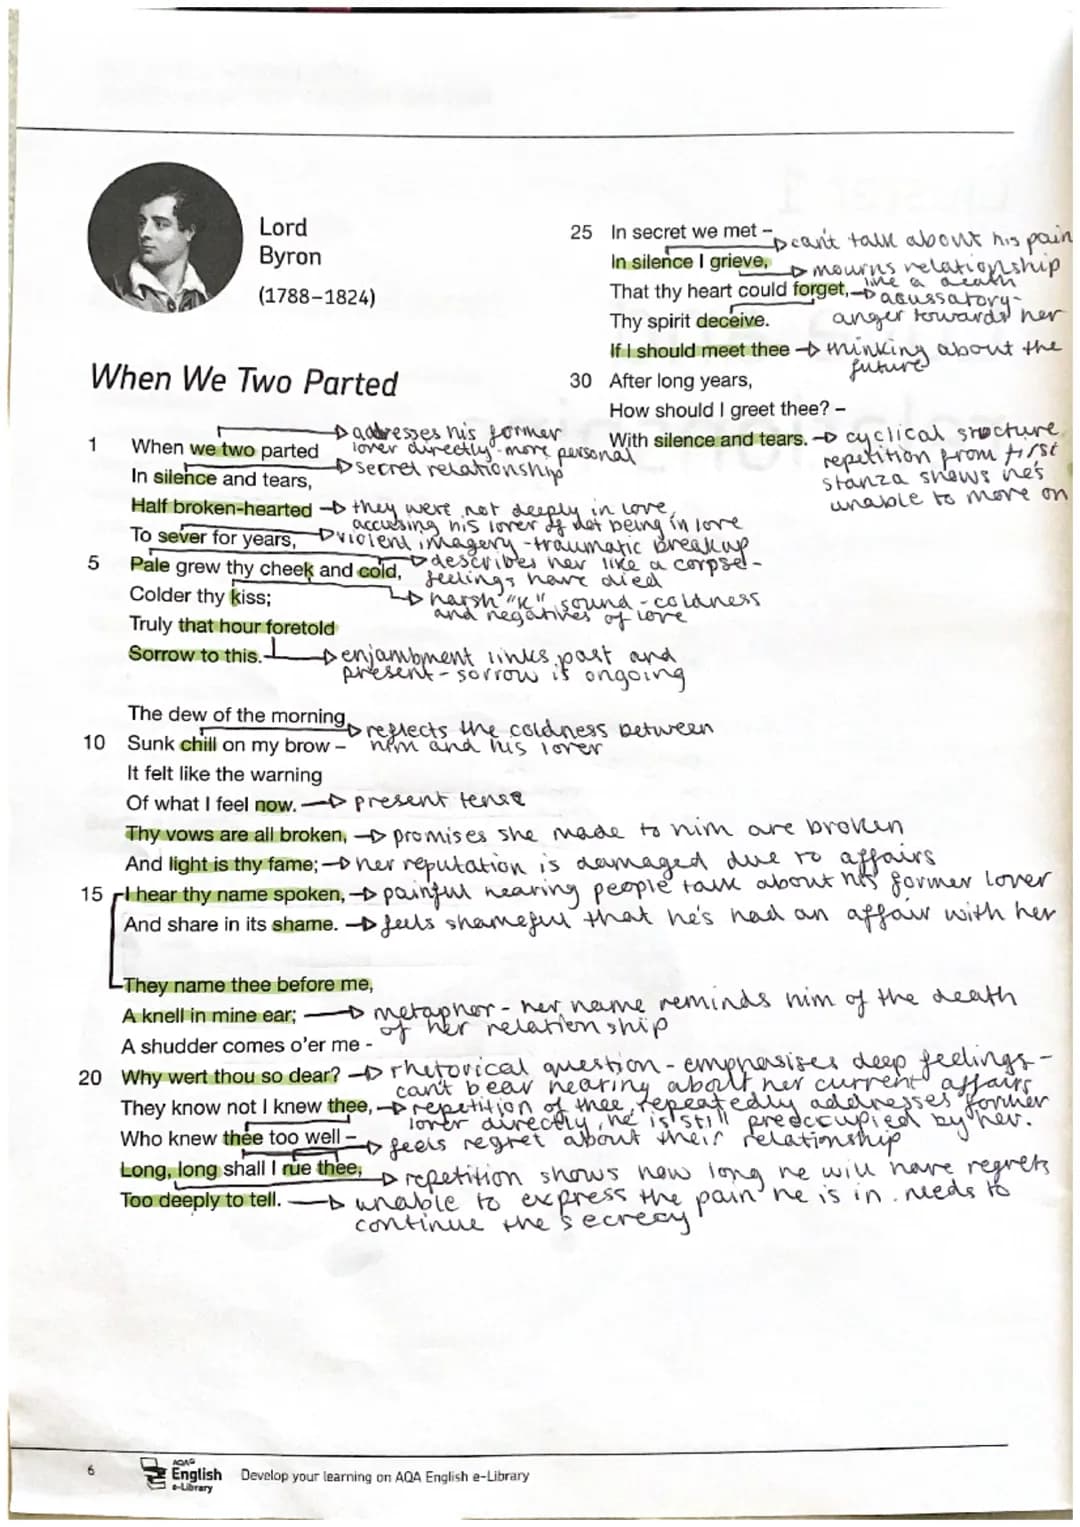 Lord
Byron
(1788–1824)
When We Two Parted
1 When we two parted
addresses his former
lover directly - more personal
In silence and tears,
secret relationship
Half broken-hearted
they were not deeply in love,
accusing his lover of not being in love
To sever for years,
violent imagery - traumatic breakup
5 Pale grew thy cheek and cold,
describes her like a corpse -
feelings have died
Colder thy kiss;
harsh "K" sound - coldness
and negatives of love
Truly that hour foretold
Sorrow to this.
enjambment links past and
present - sorrow is ongoing
The dew of the morning
10 Sunk chill on my brow –
reflects the coldness between
him and his lover
It felt like the warning
Of what I feel now.
present tense
Thy vows are all broken,
promises she made to him are broken
And light is thy fame;
her reputation is damaged due to affairs
15 I hear thy name spoken,
painful hearing people talk about his former lover
And share in its shame.
feels shameful that he's had an affair with her
They name thee before me,
A knell in mine ear;
metaphor - her name reminds him of the death
of her relationship
A shudder comes o'er me -
20 Why wert thou so dear?
rhetorical question - emphasises deep feelings -
can't bear hearing about her current affairs
They know not I knew thee,
repetition of thee, repeatedly addresses former
lover directly, he is still preoccupied by her.
Who knew thee too well –
feels regret about their relationship
Long, long shall I rue thee,
repetition shows how long he will have regrets
Too deeply to tell.
unable to express the pain he is in. needs to
continue the secrecy
25 In secret we met –
In silence I grieve,
can't talk about his pain
mourns relationship
like a death
That thy heart could forget,
acussatory -
anger towards her
Thy spirit deceive.
If I should meet thee
thinking about the
future
30 After long years,
How should I greet thee? –
With silence and tears.
cyclical structure
repetition from first
stanza shows he's
unable to move on
6
AQA
English
e-Library
Develop your learning on AQA English e-Library